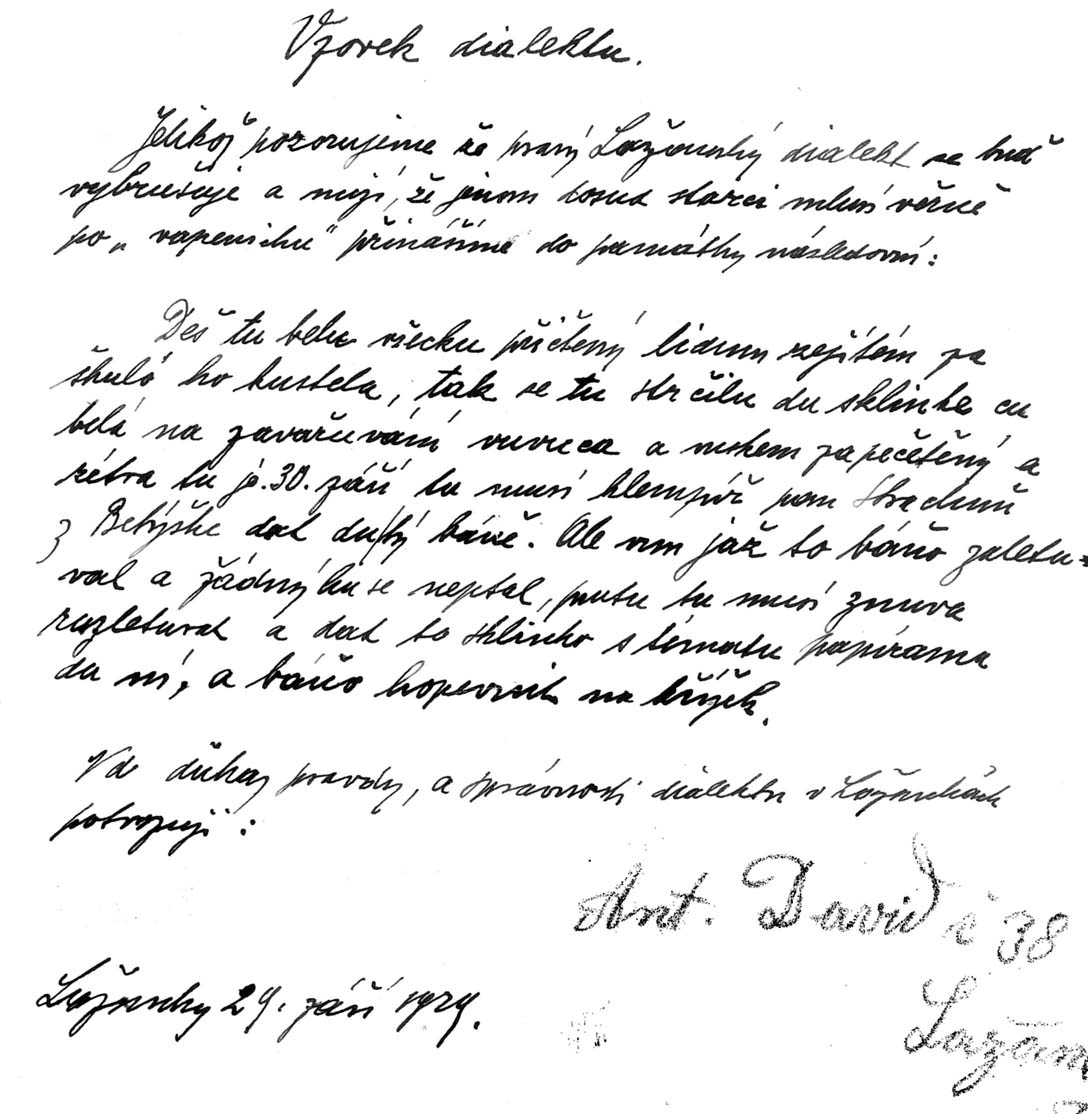 Vzorek dialektu.
Jelikož pozorujeme že pravý Lažánský dialekt se buď
vybrušuje a mijí, že jenom dosud starci mluví věrně
po „vapenicku" přinášíme do památky následovní:
Deš tu belu všecku přečtený lidum sejitém za
škuló ho kustela, tak se tu strčilu du sklinke cu
belá na zavařuvání vuvuca a vuskem zapečetěný a
zétra tu je 30. září tu musi klempíř pan Strachuň
z Betýške dat du tý báně. Ale vun jož to báňo zaletu-
val a žádnýhu se neptal, prutu tu musi znuva
razletuvat a dat to sklinko s těmatu papírama
du ní, a báňo hopevnit na křížek.
Na důkaz pravdy, a správnosti dialektu v Lažánkách
potvrzuji:
Ant. David č 38
Lažán
Lažánky 29. září 1929.